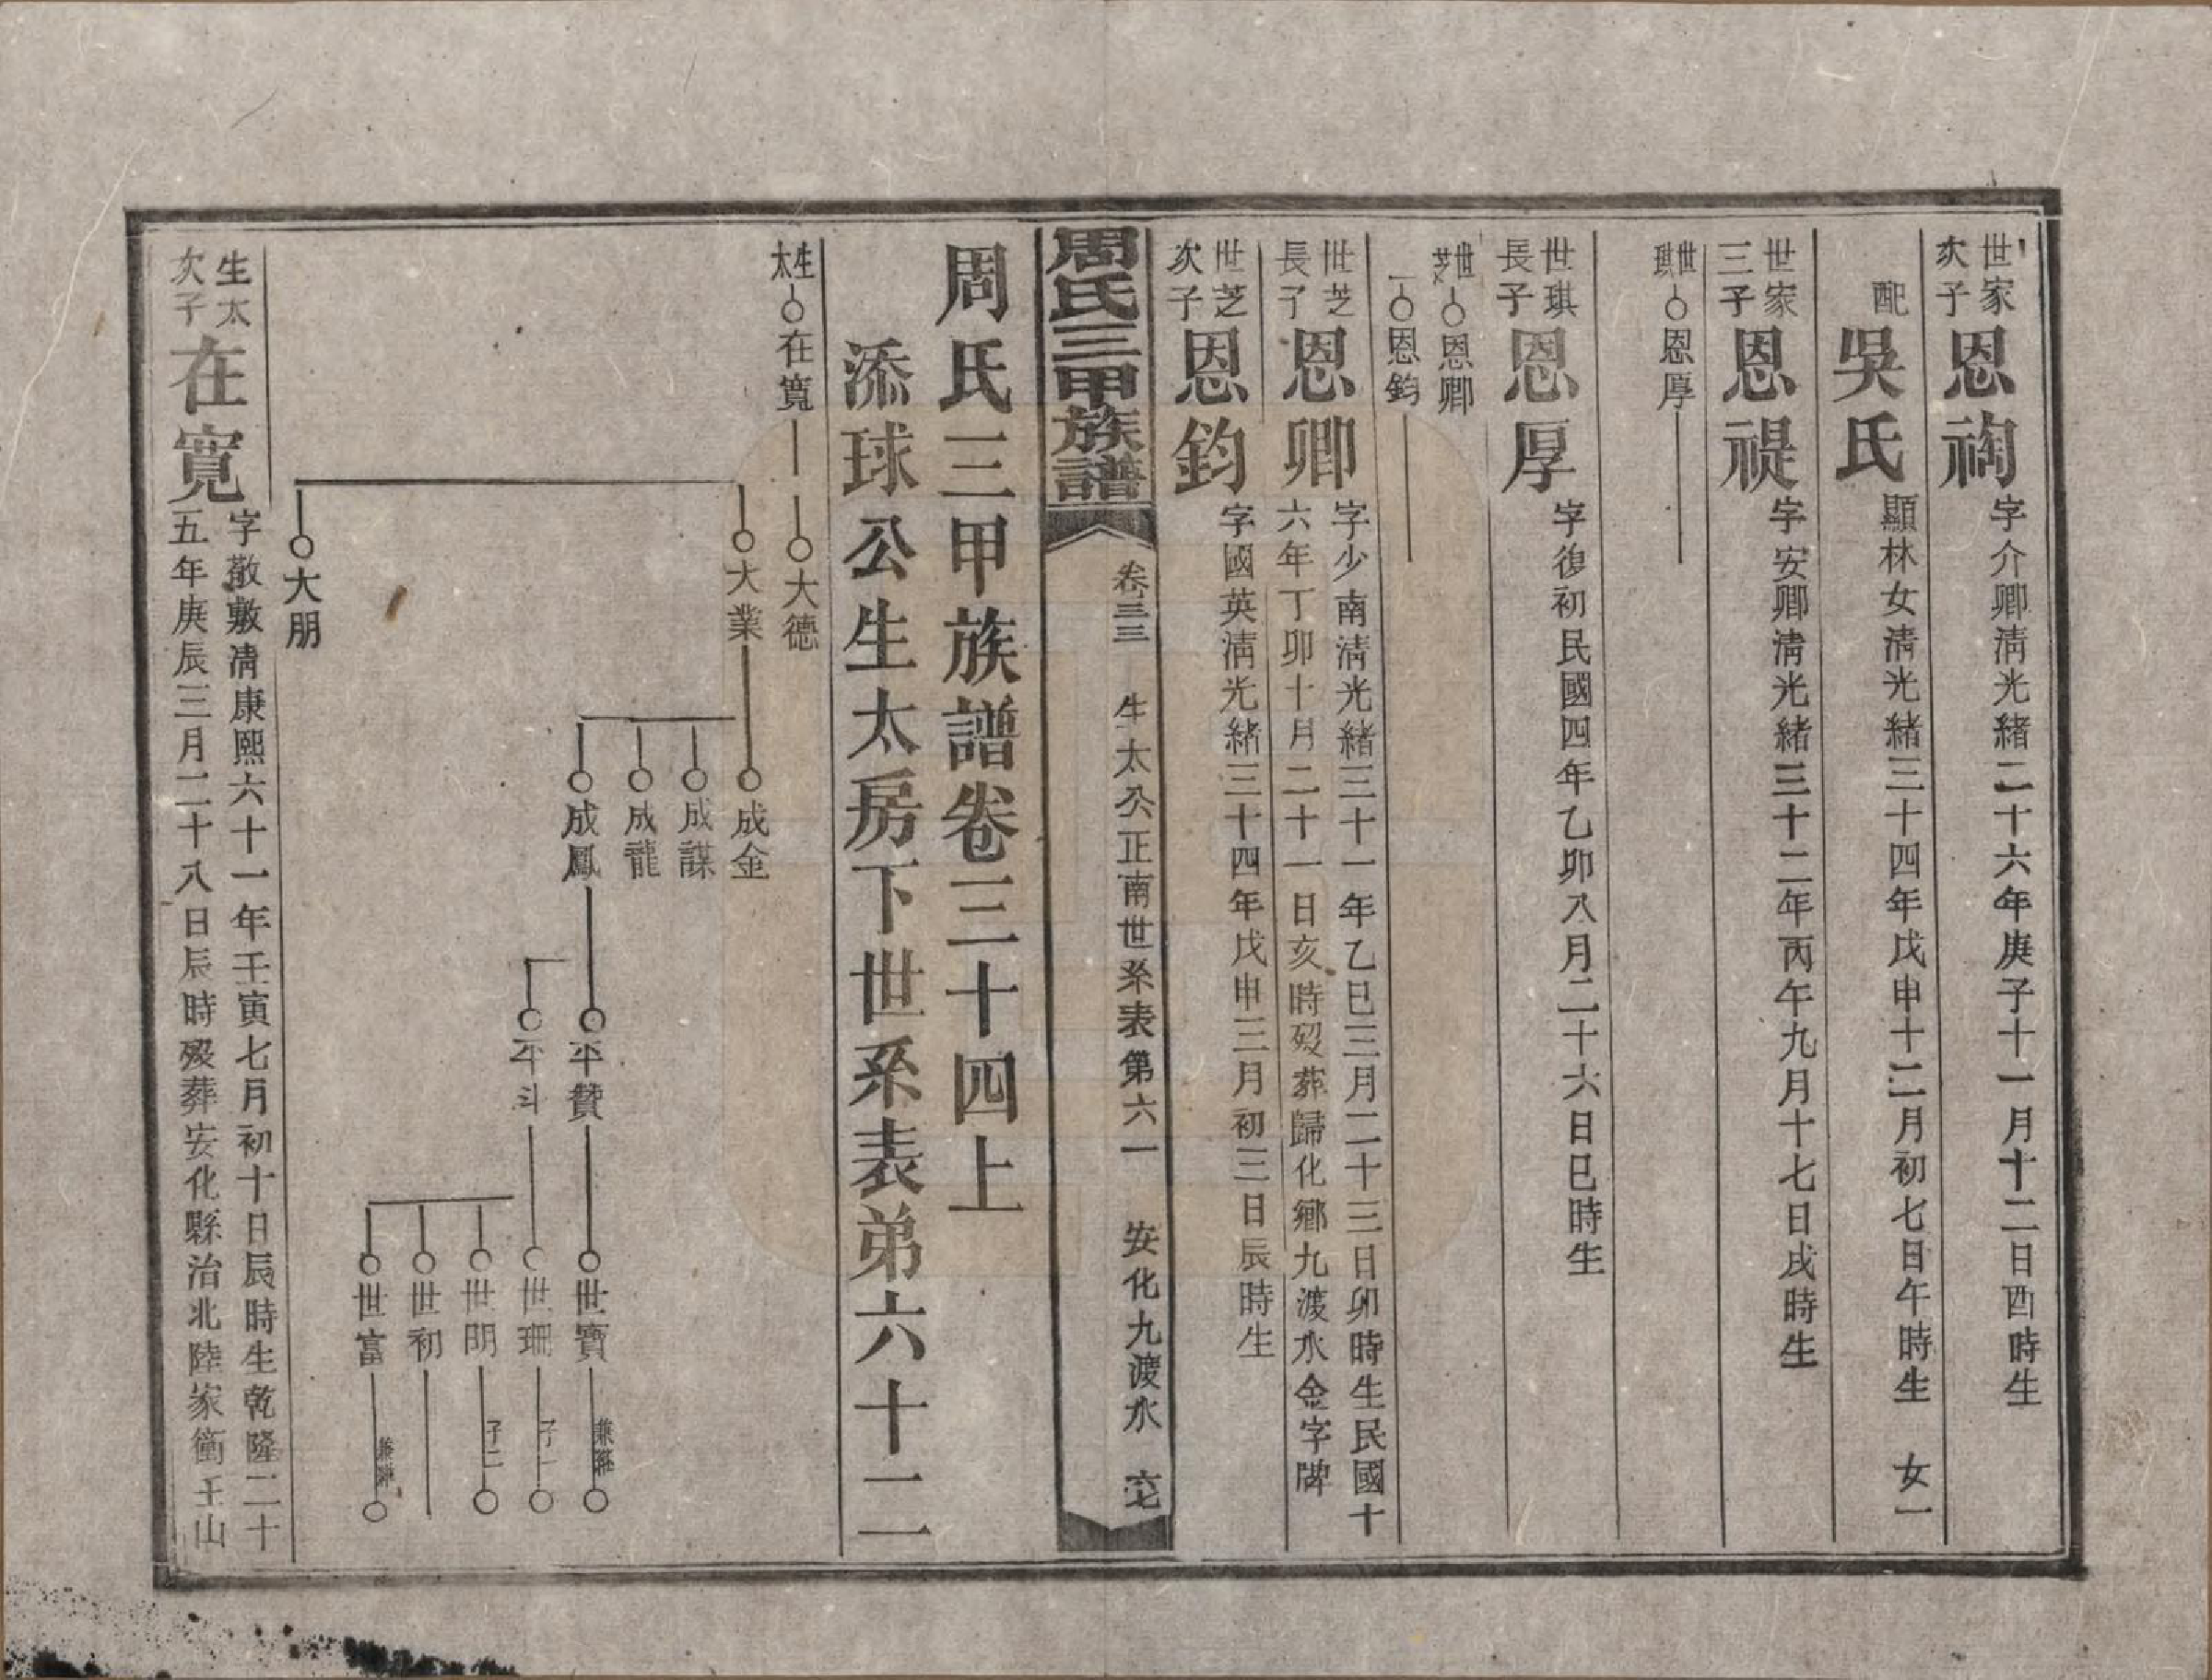 世家次子恩祹字介卿淸光緒二十六年庚子十一月十二日酉時生
配吳氏顯林女淸光緒三十四年戊申十二月初七日午時生 女一
世家三子恩禔字安卿淸光緒三十二年丙午九月十七日戌時生
世琪 恩厚
世琪長子恩厚字復初民國四年乙卯八月二十六日巳時生
世芝 恩卿
恩鈞
世芝長子恩卿字少南淸光緒三十一年乙巳三月二十三日卯時生民國十
六年丁卯十月二十一日亥時歿葬歸化鄉九渡水金字牌
世芝次子恩鈞字國英淸光緒三十四年戊申三月初三日辰時生
周氏三甲族譜 卷三三 生太公正南世系表第六一 安化九渡水
周氏三甲族譜卷三十四上
添球公生太房下世系表弟六十二
生太 在寬
大德
大業
大朋
成金
成謀
成龍
成鳳
平贊
平斗
世寶
世珊 子一
世明 子二
世初
世富
生太次子在寬字敬敷淸康熙六十一年壬寅七月初十日辰時生乾隆二十
五年庚辰三月二十八日辰時歿葬安化縣治北陸家衝王山